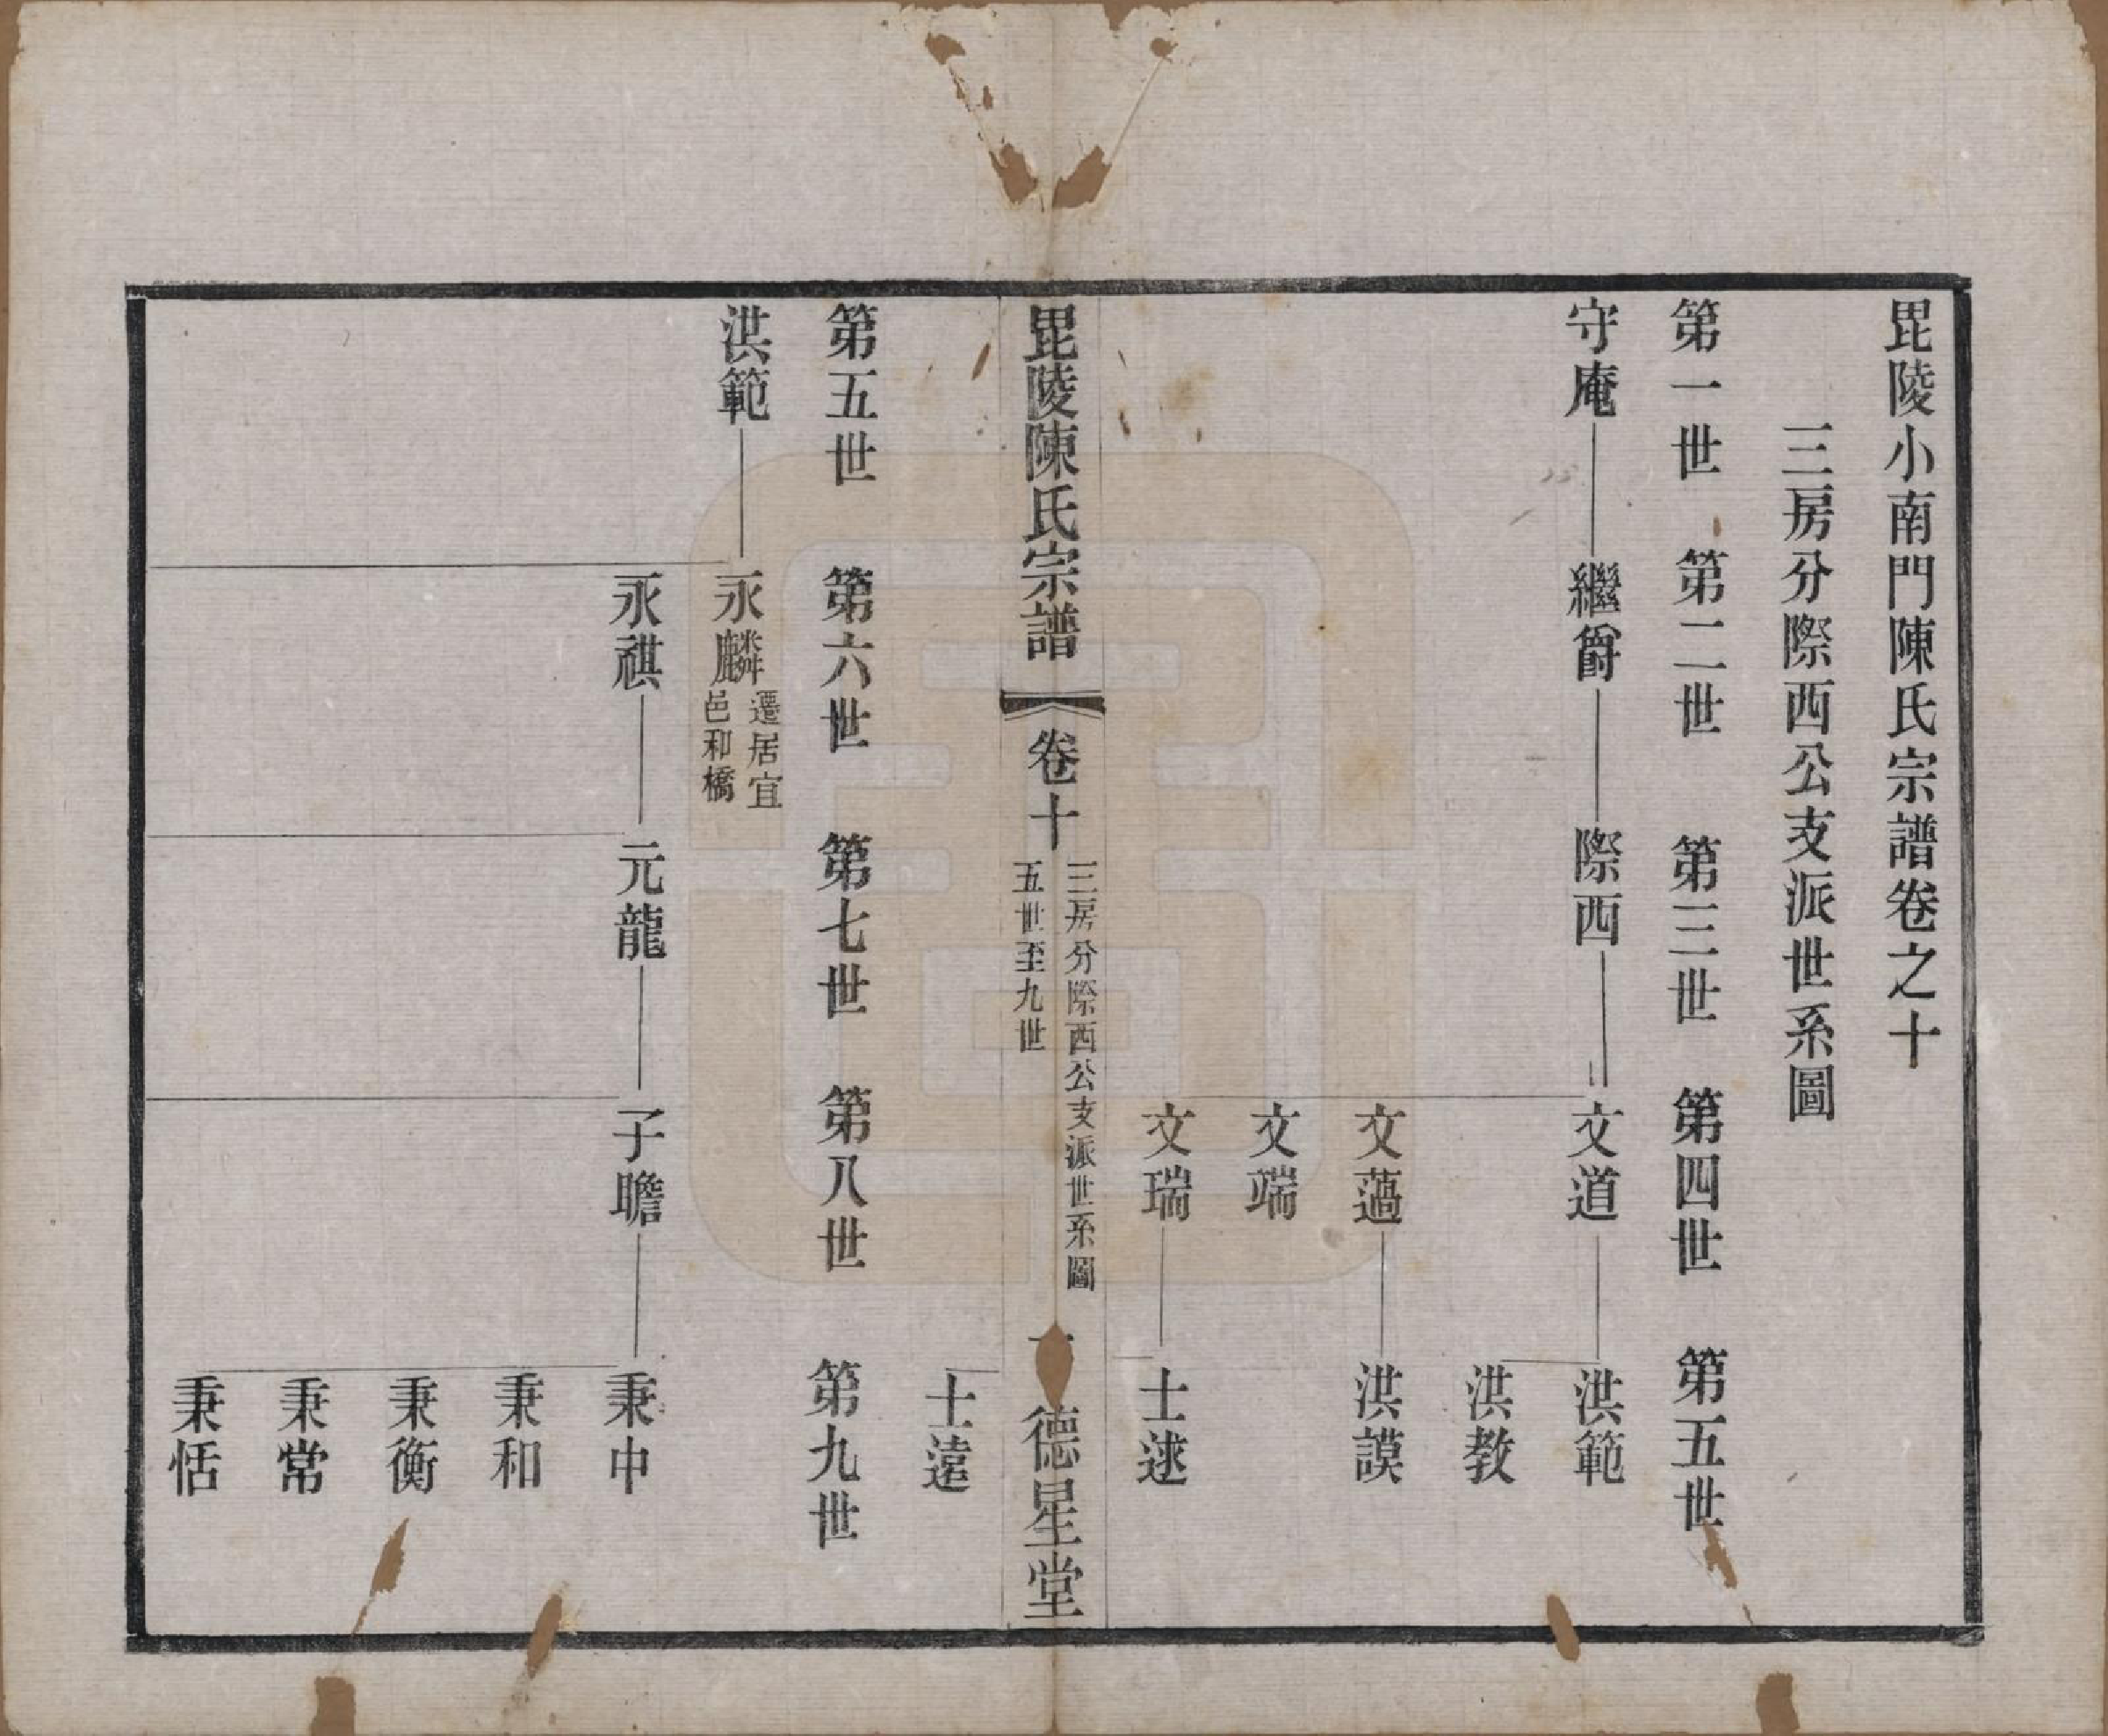 毘陵小南門陳氏宗譜卷之十
三房分際西公支派世系圖
第一世 第二世 第三世 第四世 第五世
守庵 繼爵 際西 文道 洪範
洪教
文薖 洪謨
文端
文瑞 士逑
毘陵陳氏宗譜 卷十 三房分際西公支派世系圖 五世至九世 一 德星堂
士遠
第五世 第六世 第七世 第八世 第九世
洪範 永麟 遷居宜邑和橋
永祺 元龍 子瞻 秉中
秉和
秉衡
秉常
秉恬